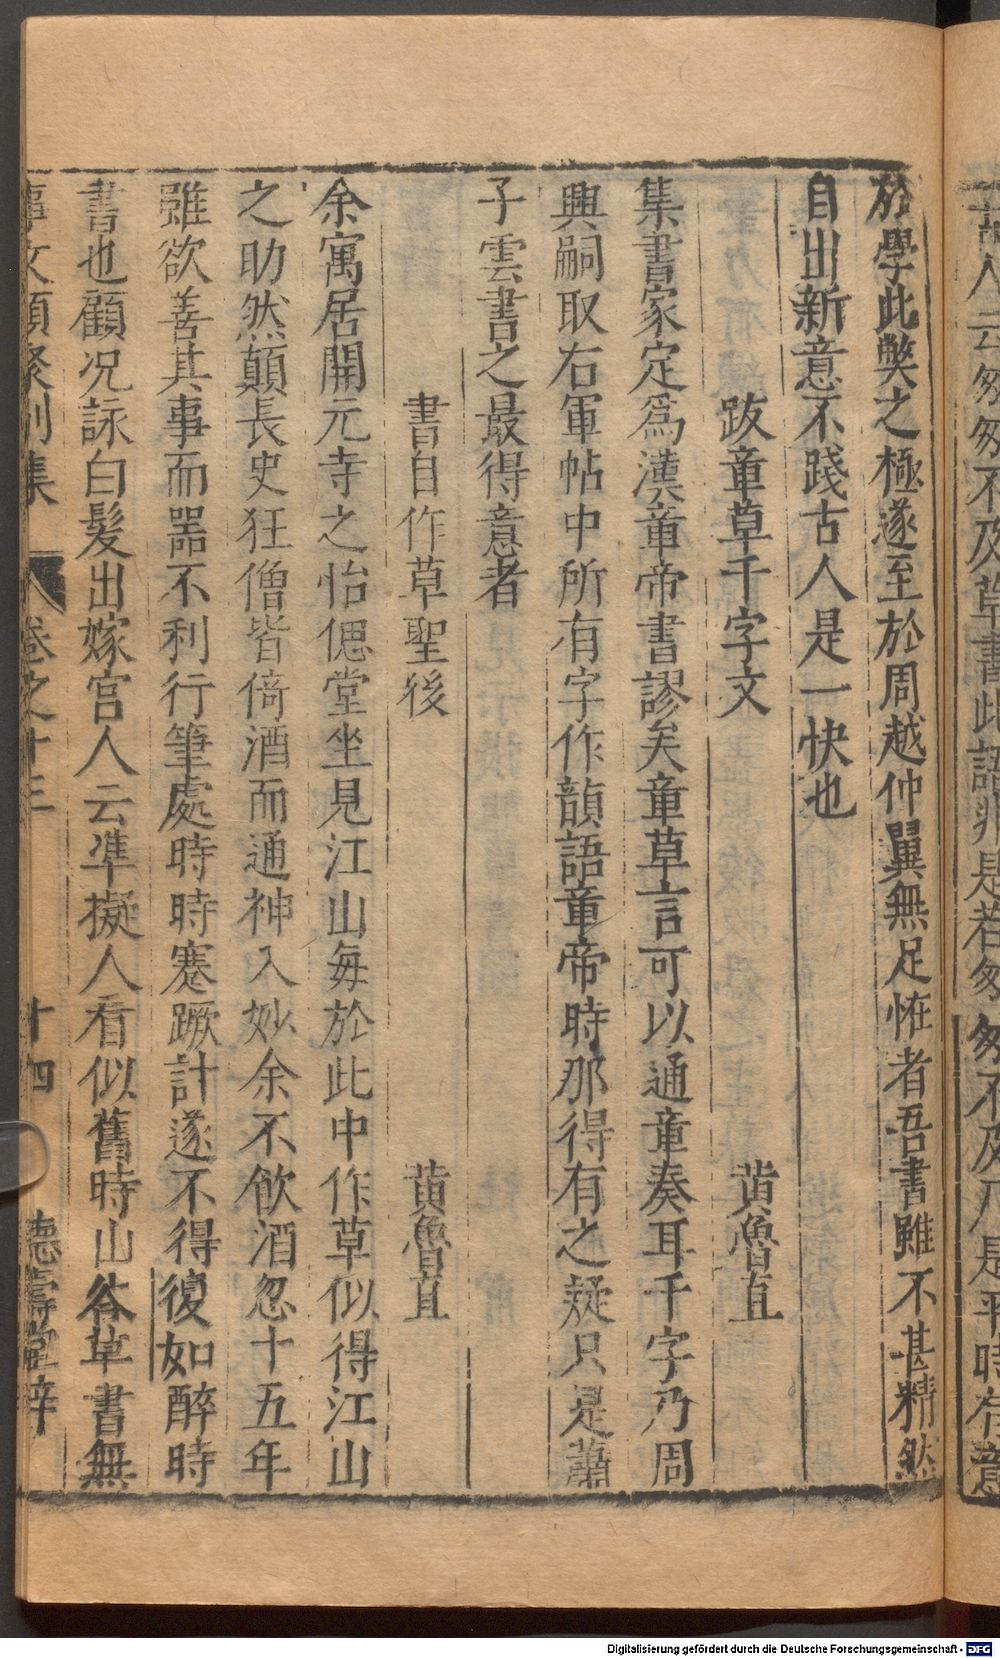 言人云匆匆不及草書此語殊是若匆匆不及乃是平時有意
於學此獘之極遂至於周越仲翼無足恠者吾書雖不甚精然
自出新意不踐古人是一快也
跋章草千字文 黄魯直
集書家定爲漢章帝書謬矣章草言可以通章奏耳千字乃周
興嗣取右軍帖中所有字作韻語章帝時那得有之疑只是蕭
子雲書之最得意者
書自作草聖後 黄魯直
余寓居開元寺之怡偲堂坐見江山每於此中作草似得江山
之助然顛長史狂僧皆倚酒而通神入妙余不飲酒忽十五年
雖欲善其事而器不利行筆處時時蹇蹶計遂不得復如醉時
書也顧况詠白髮出嫁宫人云凖擬人看似舊時山谷草書無
事文類聚別集 卷之十三 十四 德壽堂梓
Digitalisierung gefördert durch die Deutsche Forschungsgemeinschaft - DFG